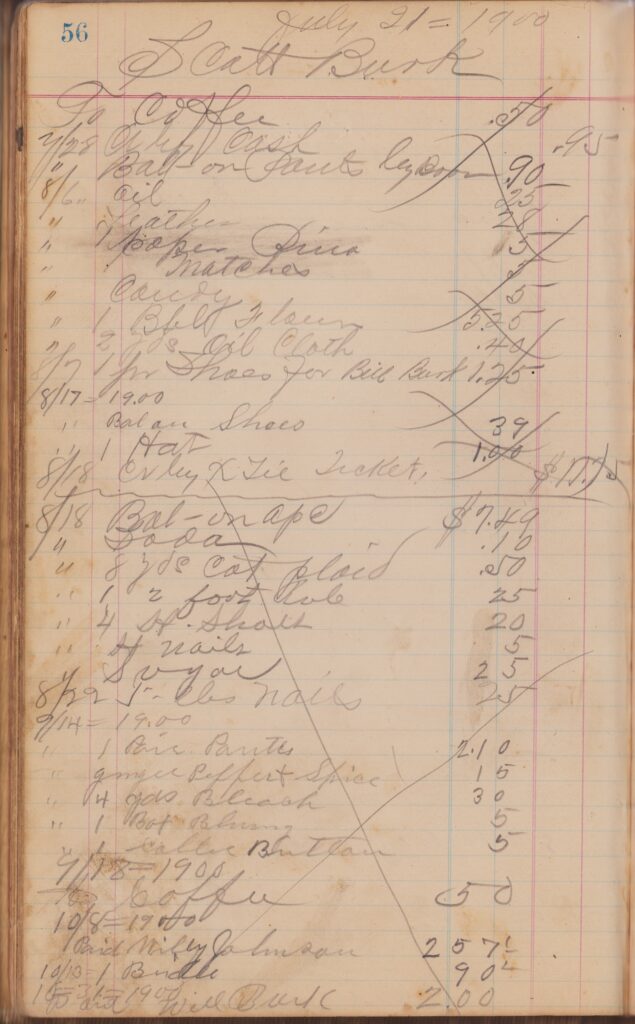 56
July 21 = 1900
Scott Burk
To Coffee .50
7/28 Cash .95
" Bal-on Pants .90
8/6 " Oil 25
" Leather 25
" 5
" Matches 5
" Candy 5
" 1 Bbl Flour 5.25
" 2 yds Oil Cloth .40
8/7 1 pr Shoes for Bill Burk 1.25
8/17 = 19.00
" Bal on Shoes 39
" 1 Hat 1.00
8/18 Ticket,
8/18 Bal-on apc $7.49
" Soda .10
" 8 yds Cot plaid .50
" 1 2 foot 25
" 4 20
" Nails 5
" Sugar 25
8/22 5- lbs Nails 25
9/14 = 19.00
" 1 Pair Pants 2.10
" ginger Pepper & Spice 15
" 4 yds Bleach 30
" 1 Bot Bluing 5
" 1 Button 5
9/18 = 1900
To Coffee 50
10/8 = 1900
Paid Wiley Johnson 2 57
10/13 = 1 Bridle 90
= 1900
Will Burk 2.00